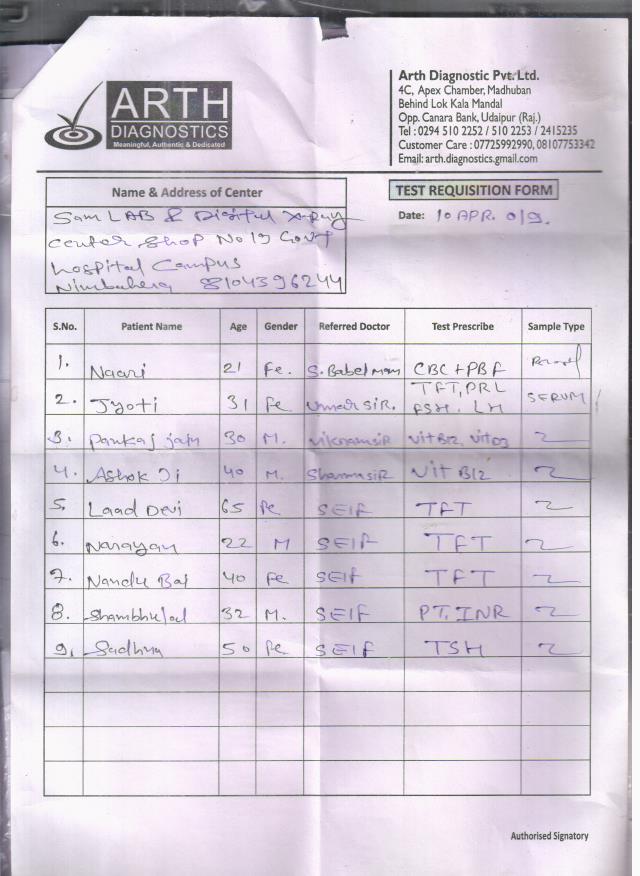 ARTH
DIAGNOSTICS
Meaningful, Authentic & Dedicated
Arth Diagnostic Pvt. Ltd.
4C, Apex Chamber, Madhuban
Behind Lok Kala Mandal
Opp. Canara Bank, Udaipur (Raj.)
Tel : 0294 510 2252 / 510 2253 / 2415235
Customer Care : 07725992990, 08107753342
Email: arth.diagnostics.gmail.com
Name & Address of Center
Sam LAB & Digital X-Ray
Center, Shop No 19 Govt
Hospital Campus
Nimbahera 8104396244
TEST REQUISITION FORM
Date: 10 APR. 019.
S.No. Patient Name Age Gender Referred Doctor Test Prescribe Sample Type
1. Naari 21 Fe. S. Babel mam CBC + PBF
2. Jyoti 31 Fe Umar SIR. TFT, PRL FSH. LH SERUM
3. Pankaj jain 30 M. vikram sir vit B12, vit D3
4. Ashok Ji 40 M. Sharma sir Vit B12
5. Laad Devi 65 Fe SElf TFT
6. Narayan 22 M SElf TFT
7. Nandu Bai 40 Fe SElf TFT
8. Shambhulal 32 M. SElf PT. INR
9. Sadhna 50 Fe SElf TSH
Authorised Signatory